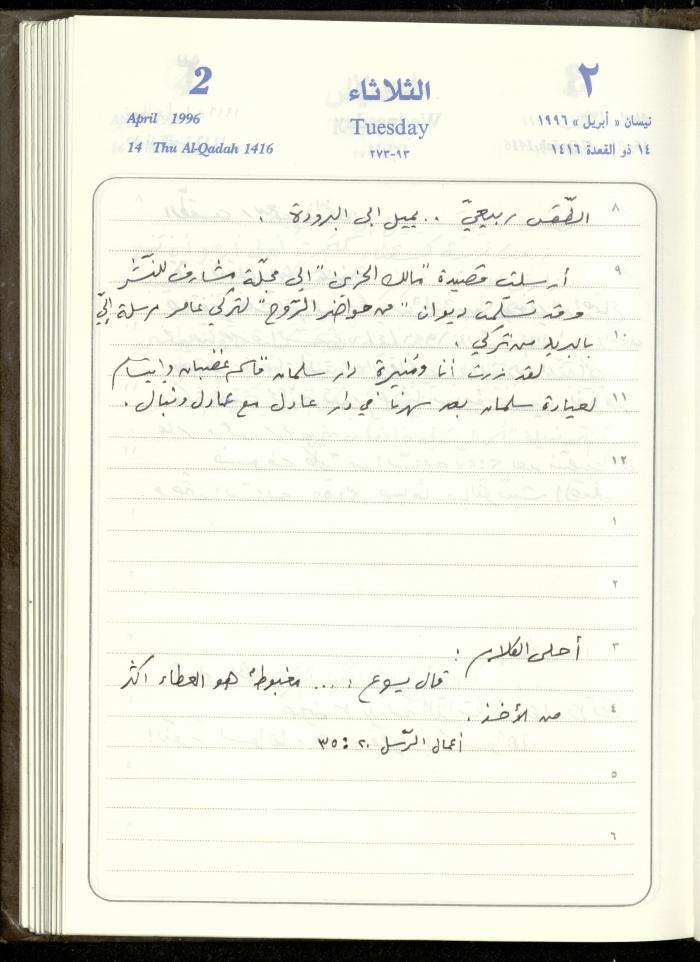 2 الثلاثاء ٢
April 1996 Tuesday نيسان « أبريل » ١٩٩٦
14 Thu Al-Qadah 1416 ٩٣-٢٧٣ ١٤ ذو القعدة ١٤١٦
٨ الطّقس ربيعيّ .. يميل الى البرودة .
٩ أرسلت قصيدة "مالك الحزين" الى مجلّة مشارف للنّشر
وقد تسلّمت ديوان "من حواضر الرّوح" لتركي عامر مرسلة إليّ
١٠ بالبريد من تركي .
لقد زرت أنا ومنيرة دار سلمان قاسم غضبان وابتسام
١١ لعيادة سلمان بعد سهرنا في دار عادل مع عادل ونبال .
١٢
١
٢
٣ أحلى الكلام :
قال يسوع : ... مغبوطٌ هو العطاء اكثر
٤ من الأخذ .
اعمال الرّسل ٢٠ : ٣٥
٥
٦